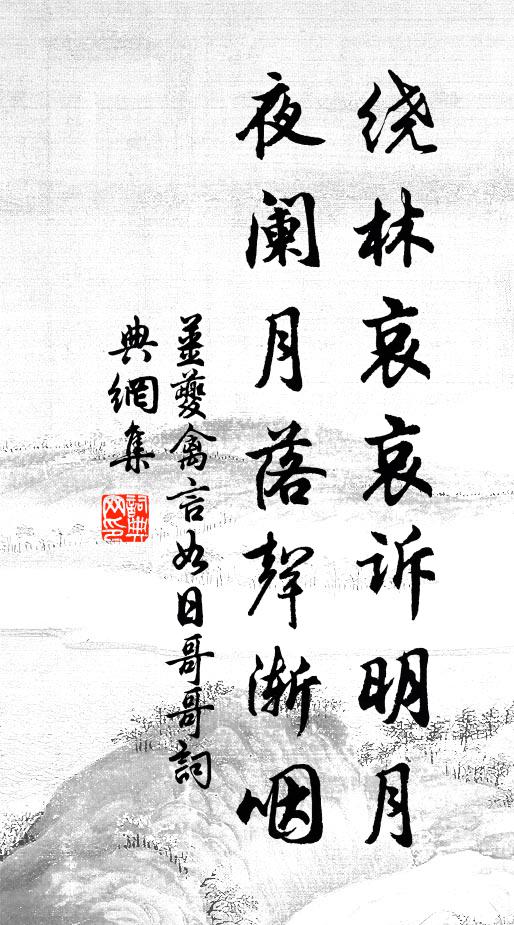 绕林哀哀诉明月
夜阑月落声渐咽
姜夔禽言如日哥哥詞
典網集
詞典
网印